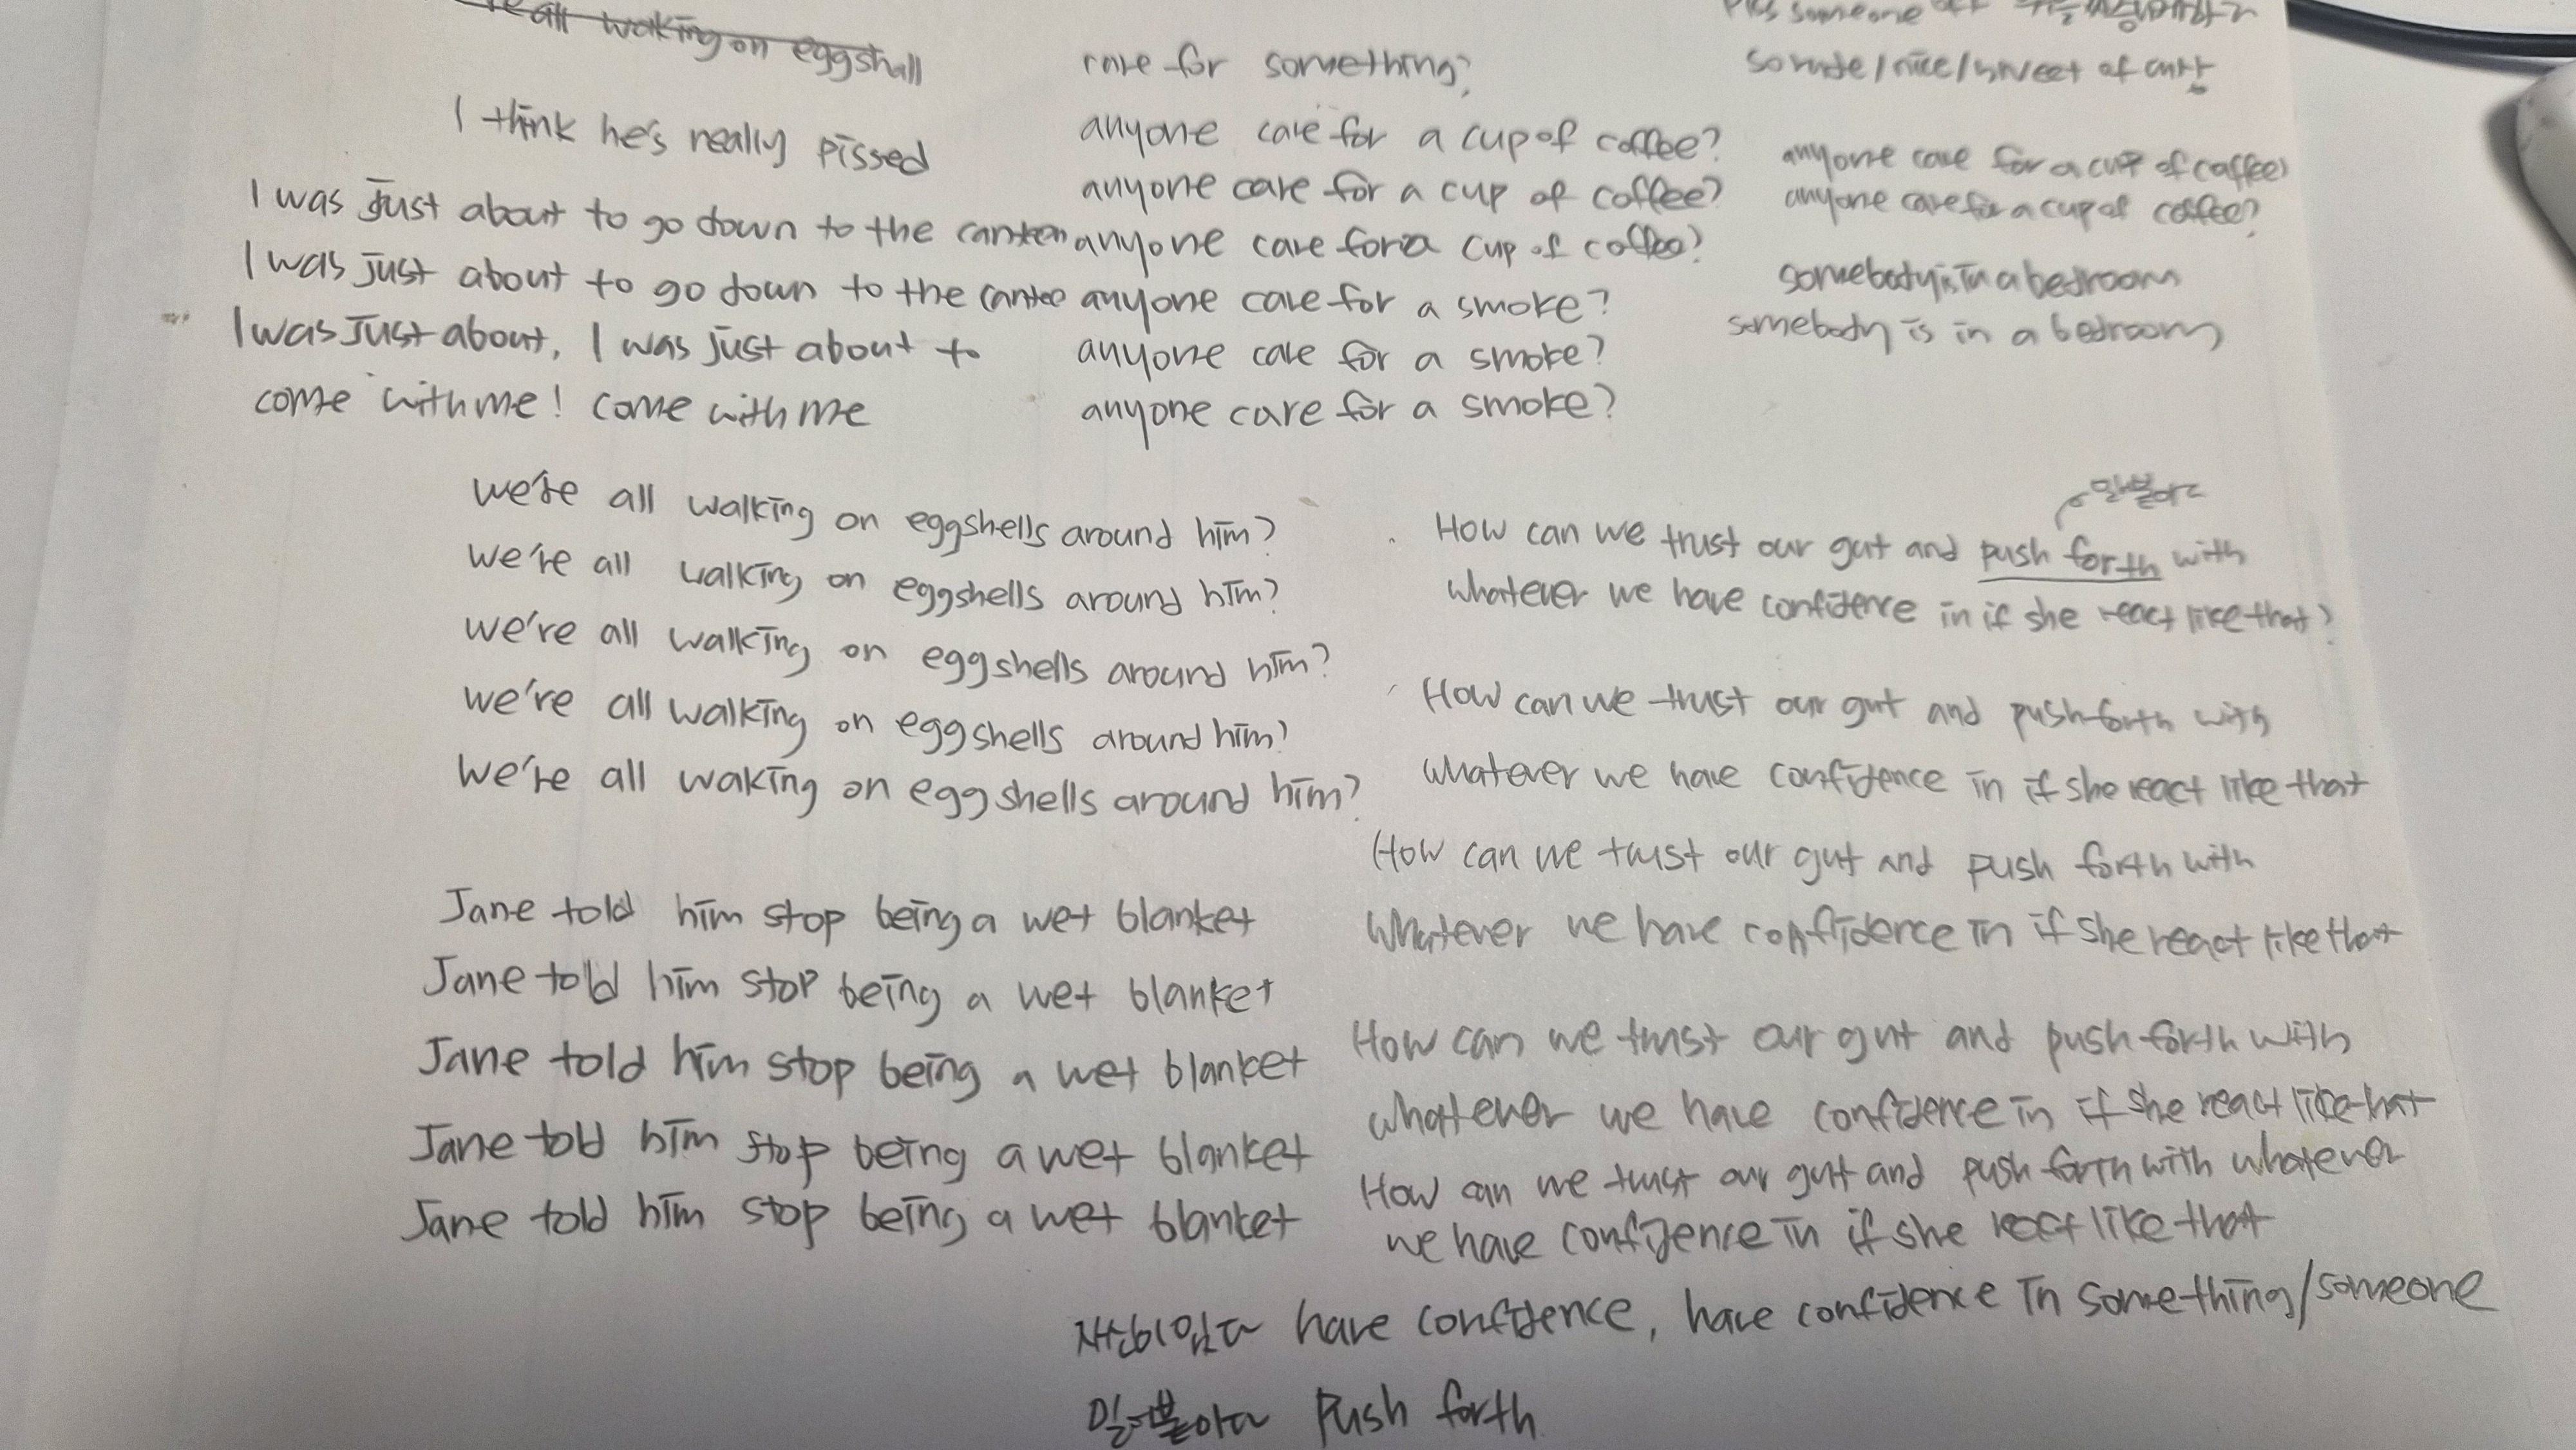 all waking on eggshall
I think he's really pissed
I was just about to go down to the canteen
I was just about to go down to the cantee
I was Just about, I was just about to
come with me! come with me
care for something?
anyone care for a cup of coffee?
anyone care for a cup of coffee?
anyone care for a cup of coffee?
anyone care for a smoke?
anyone care for a smoke?
anyone care for a smoke?
someone off
so rude/nice/sweet of
anyone care for a cup of coffee?
anyone care for a cup of coffee?
somebody is in a bedroom
somebody is in a bedroom
we're all walking on eggshells around him?
we're all walking on eggshells around him?
we're all walking on eggshells around him?
we're all walking on eggshells around him?
we're all waking on eggshells around him?
Jane told him stop being a wet blanket
Jane told him stop being a wet blanket
Jane told him stop being a wet blanket
Jane told him stop being a wet blanket
Jane told him stop being a wet blanket
밀어붙이다
How can we trust our gut and push forth with
whatever we have confidence in if she react like that?
How can we trust our gut and push forth with
whatever we have confidence in if she react like that
How can we trust our gut and push forth with
Whatever we have confidence in if she react like that
How can we trust our gut and push forth with
whatever we have confidence in if she react like that
How can we trust our gut and push forth with whatever
we have confidence in if she react like that
자신이있다 have confidence, have confidence in something/someone
밀어붙이다 Push forth